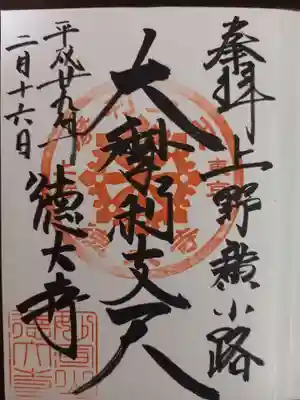 奉拝 上野廣小路
大摩利支天
徳大寺
平成廿九年
二月十六日